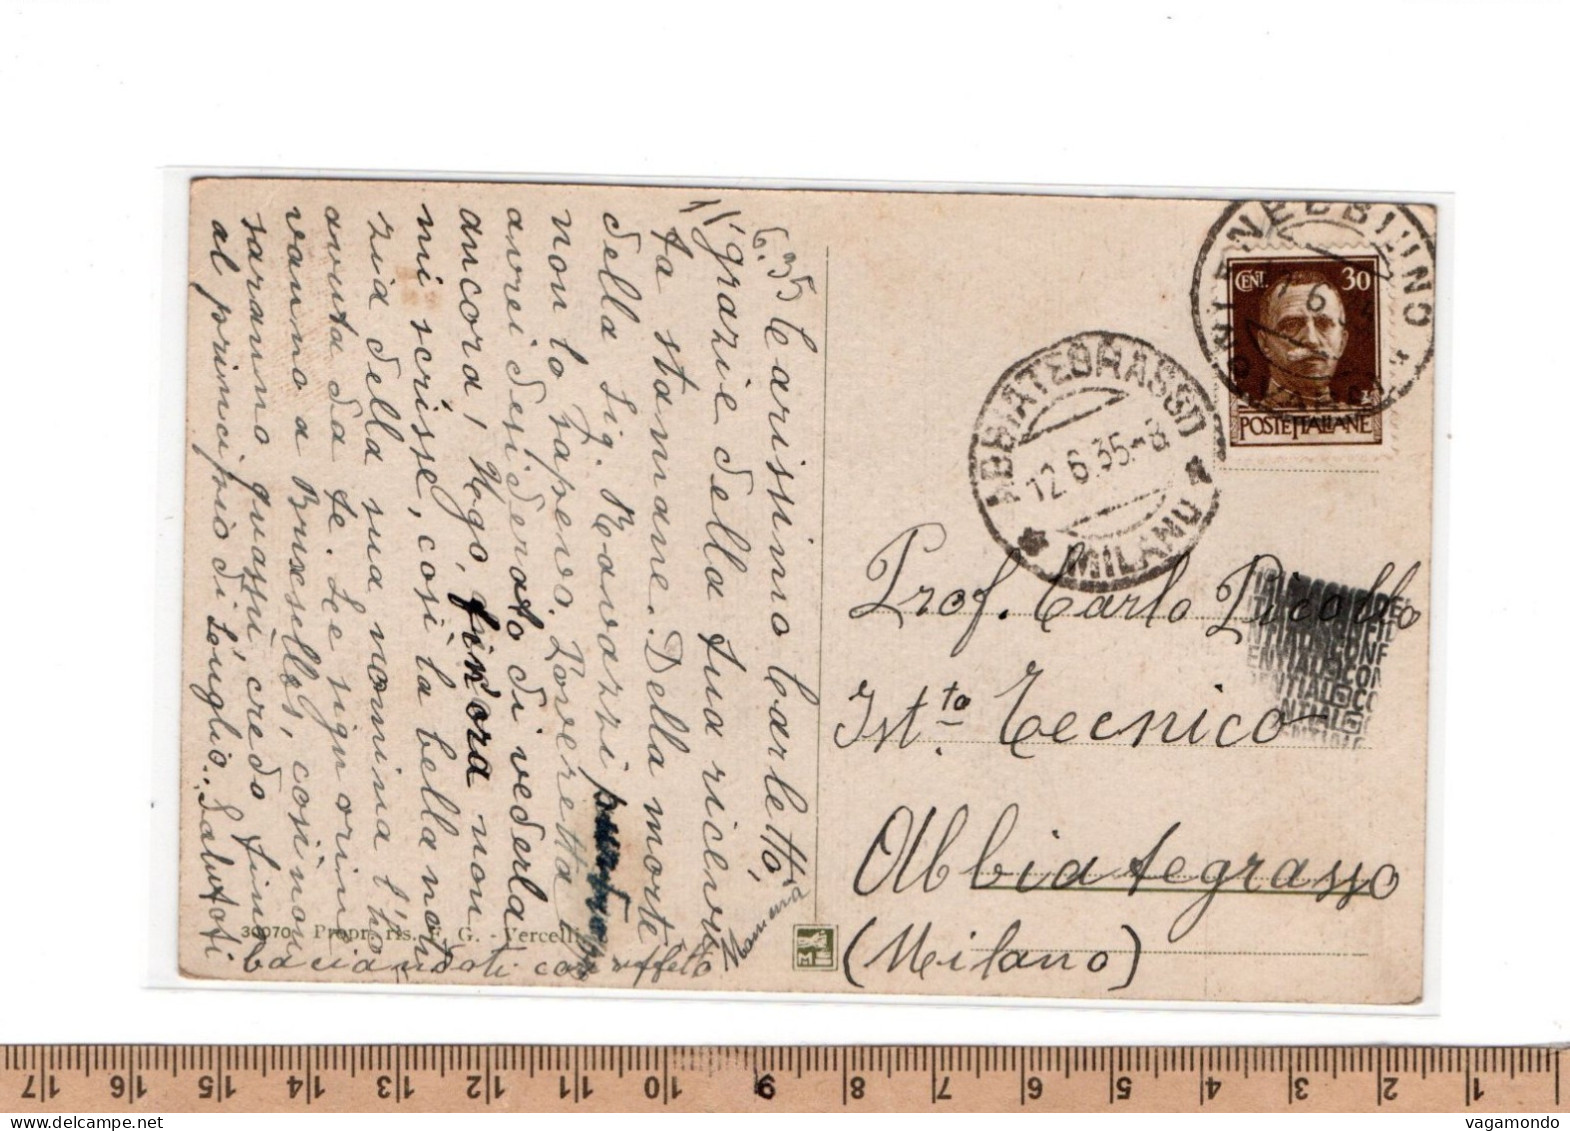 11/6.35
Carissimo Carletto,
grazie della tua ricevu
ta stamane. Della morte
della Sig. Ravazzi
non lo sapevo. Poveretta
avrei desiderato di vederla
ancora, Ugo, finora non
mi scrisse, così la bella noti
zia della sua nomina l'ho
avuta da te. Le signorine
vanno a Bruxelles, così non
saranno quassù, credo, fino
al principio di Luglio. Salutoti
baciandoti con affetto
30070 - Propr. ris. - G. - Vercelli
CENT. 30
POSTE ITALIANE
NEBBIUNO
ABBIATEGRASSO
12.6.35.-8
* MILANO *
Prof. Carlo Picollo
Ist.to Tecnico
Abbiategrasso
(Milano)
CONFIDENTIAL
17 16 15 14 13 12 11 10 9 8 7 6 5 4 3 2 1
vagamondo